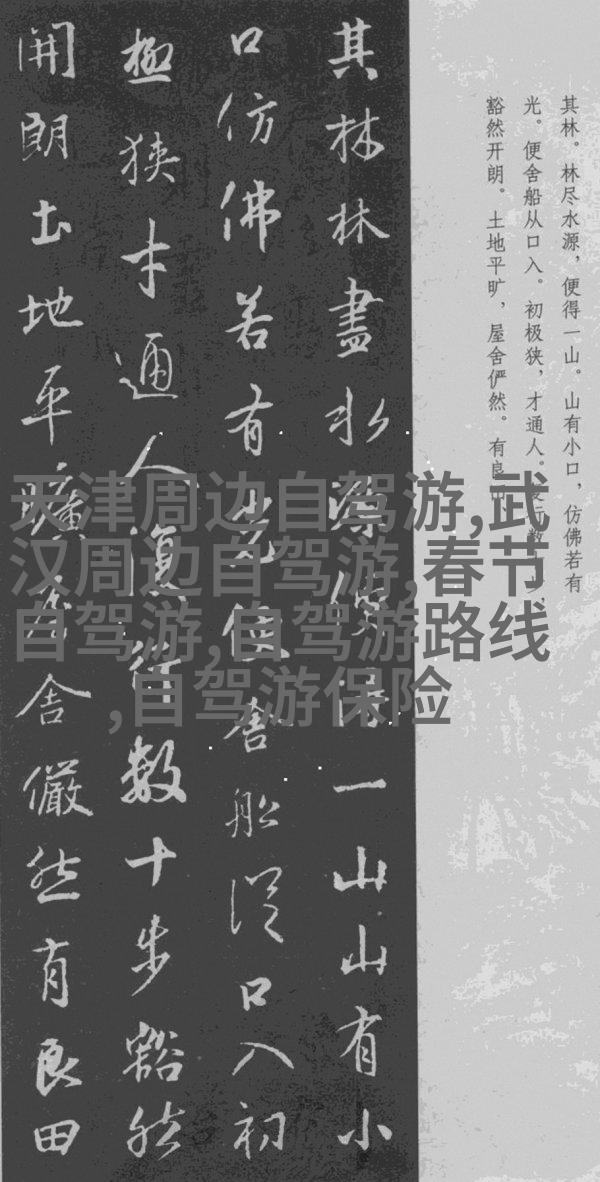 其林。林尽水源，便得一山。山有小口，仿佛若有
光。便舍船从口入。初极狭，才通人。复行数十步，
豁然开朗。土地平旷，屋舍俨然。有良田
其林林盡水源便得一山山有小
口仿佛若有光便舍船從口入初
極狭才通人復行数十步豁然
開朗土地平曠屋舍儼然有良田
天津周边自驾游,武
汉周边自驾游,春节
自驾游,自驾游路线
,自驾游保险